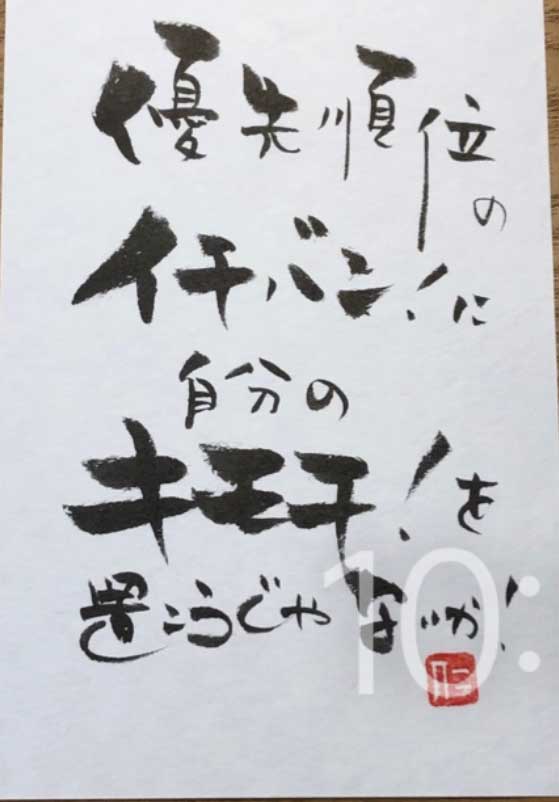 優先順位の
イチバン！に
自分の
キモチ！を
置こうじゃないか！
10: